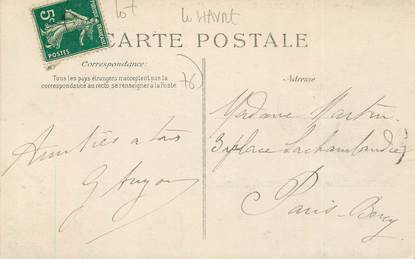 lot
Le HAVRE
5c
POSTES
CARTE POSTALE
Correspondance
Tous les pays étrangers n'acceptent pas la
correspondance au recto, se renseigner à la Poste
76
Adresse
Amitiés à tous
G
Madame Martin
3 place Lachambaudie
Paris-Bercy